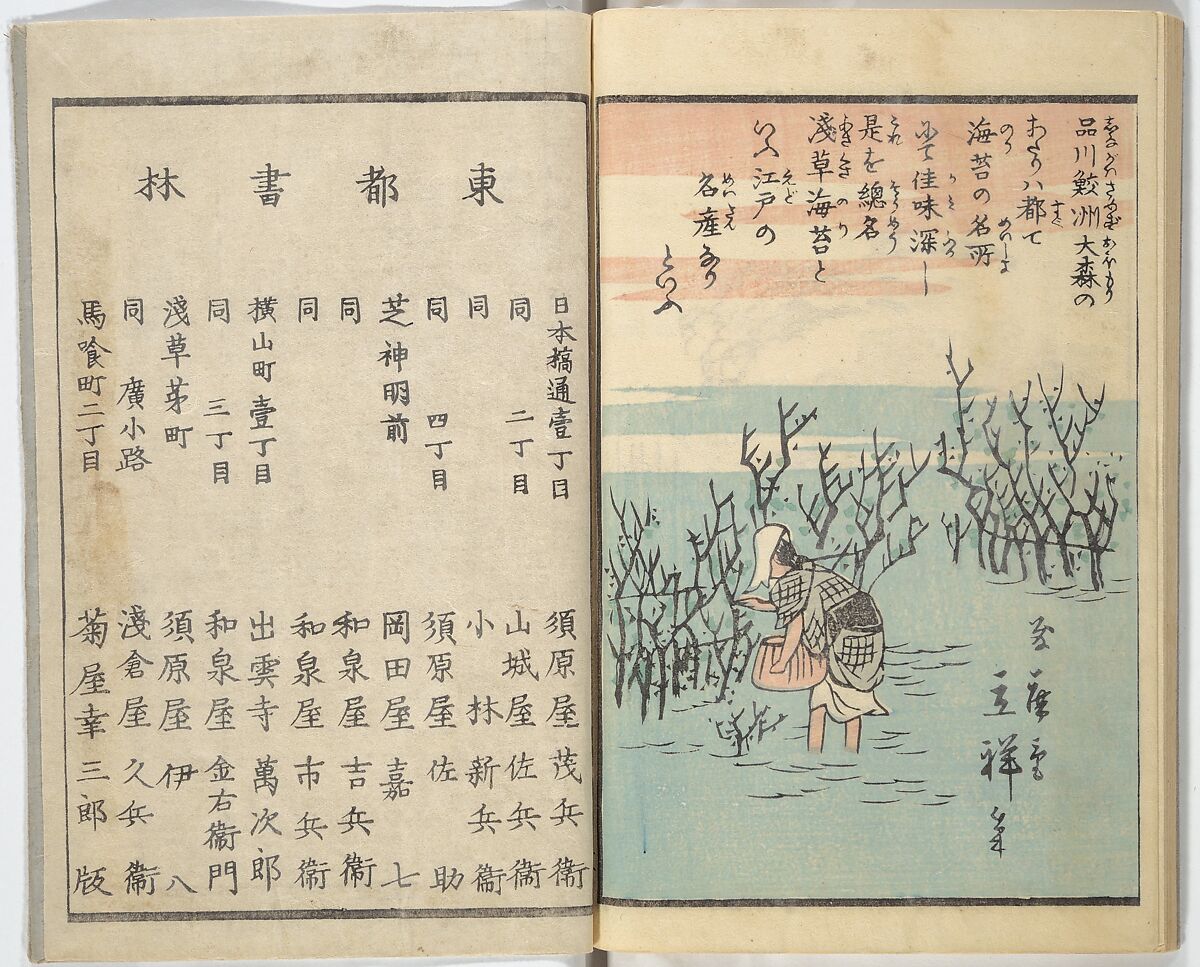 品川鮫洲大森の
あたりハ都て
海苔の名所
にて佳味深し
是を總名
淺草海苔と
いへ江戸の
名産なり
といふ
立祥筆
東都書林
日本橋通壹丁目 須原屋茂兵衞
同 二丁目 山城屋佐兵衞
同 小林新兵衞
同 四丁目 須原屋佐助
芝神明前 岡田屋嘉七
同 和泉屋吉兵衞
同 和泉屋市兵衞
横山町壹丁目 出雲寺萬次郎
同 三丁目 和泉屋金右衞門
淺草茅町 須原屋伊八
同 廣小路 淺倉屋久兵衞
馬喰町二丁目 菊屋幸三郎版